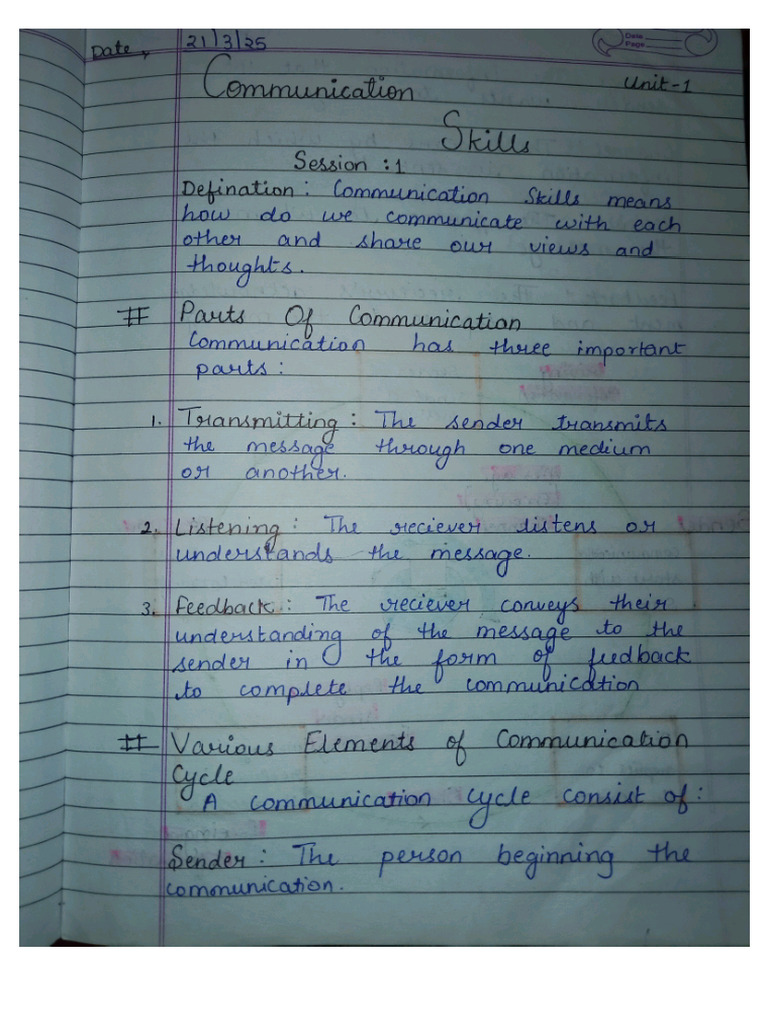 Date, 21/3/25
Date
Page
Communication Unit-1
Skills
Session :1
Defination : Communication Skills means
how do we communicate with each
other and share our views and
thoughts.
# Parts Of Communication
Communication has three important
parts :
1. Transmitting : The sender transmits
the message through one medium
or another.
2. Listening : The reciever listens or
understands the message.
3. Feedback : The reciever conveys their
understanding of the message to the
sender in the form of feedback
to complete the communication
# Various Elements of Communication
Cycle
A communication cycle consist of :
Sender : The person beginning the
communication.